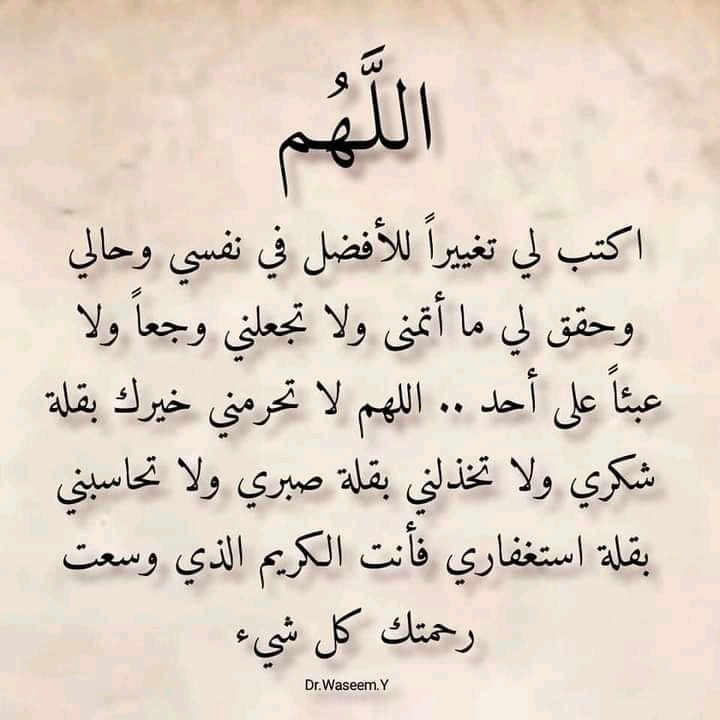 اللَّهُم
اكتب لي تغييراً للأفضل في نفسي وحالي
وحقق لي ما أتمنى ولا تجعلني وجعاً ولا
عبئاً على أحد .. اللهم لا تحرمني خيرك بقلة
شكري ولا تخذلني بقلة صبري ولا تحاسبني
بقلة استغفاري فأنت الكريم الذي وسعت
رحمتك كل شيء
Dr.Waseem.Y